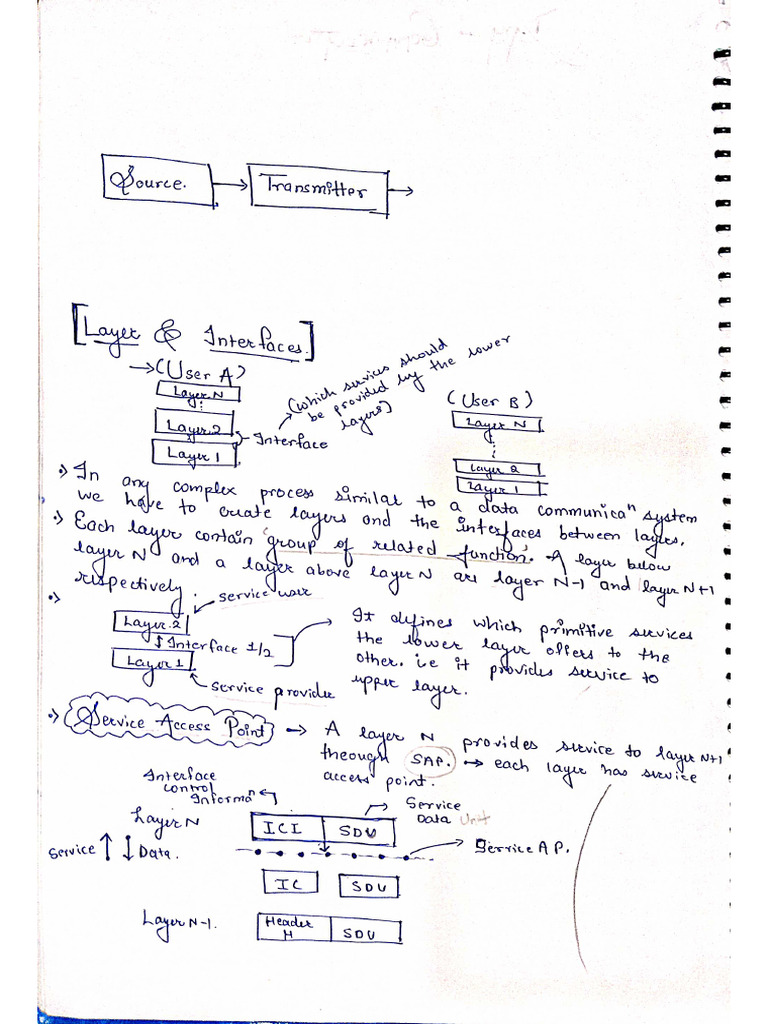 Source.
Transmitter
[Layer & Interfaces.]
→(User A)
Layer N
Layer 2
Layer 1
Interface
(Which services should
be provided by the lower
layers)
(User B)
Layer N
Layer 2
Layer 1
In any complex process similar to a data communicaⁿ system
we have to create layers and the interfaces between layers.
Each layer contain 'group of related function'. A layer below
layer N and a layer above layer N are layer N-1 and layer N+1
respectively.
service user
Layer 2
Interface 1/2
Layer 1
service provider
It defines which primitive services
the lower layer offers to the
other. i.e it provides service to
upper layer.
Service Access Point → A layer N provides service to layer N+1
through SAP. → each layer has service
access point.
Interface
control
Informaⁿ
Service
Data Unit
Layer N
ICI SDU
Service ↑ ↓ Data.
Service A P.
IC SDU
Layer N-1.
Header
H
SDU